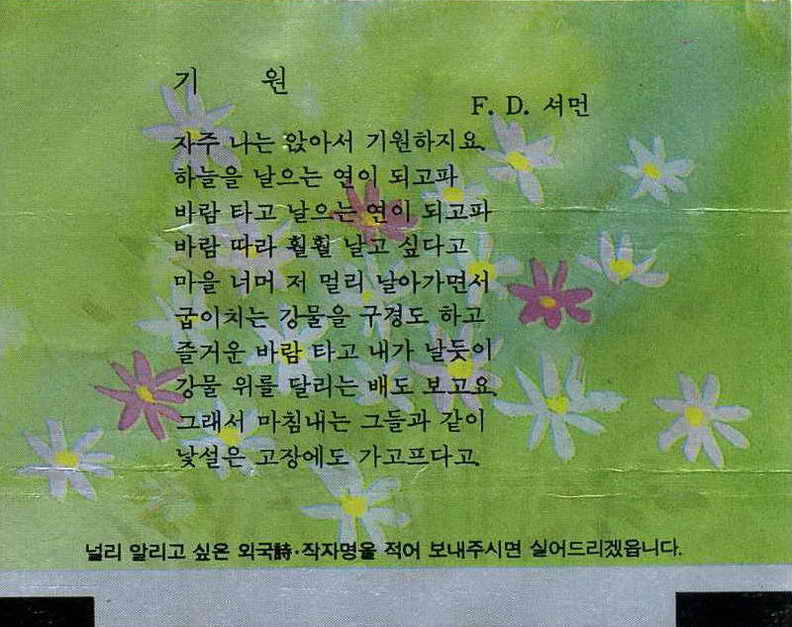 기 원
F. D. 셔먼
자주 나는 앉아서 기원하지요.
하늘을 날으는 연이 되고파
바람 타고 날으는 연이 되고파
바람 따라 훨훨 날고 싶다고
마을 너머 저 멀리 날아가면서
굽이치는 강물을 구경도 하고
즐거운 바람 타고 내가 날듯이
강물 위를 달리는 배도 보고요.
그래서 마침내는 그들과 같이
낯설은 고장에도 가고프다고.
널리 알리고 싶은 외국詩·작자명을 적어 보내주시면 실어드리겠읍니다.